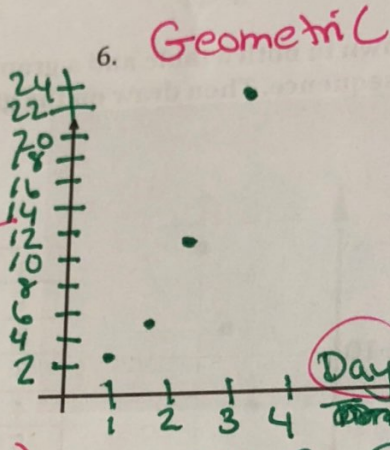 6. Geometric
24
22
20
18
16
14
12
10
8
6
4
2
Day
1 2 3 4